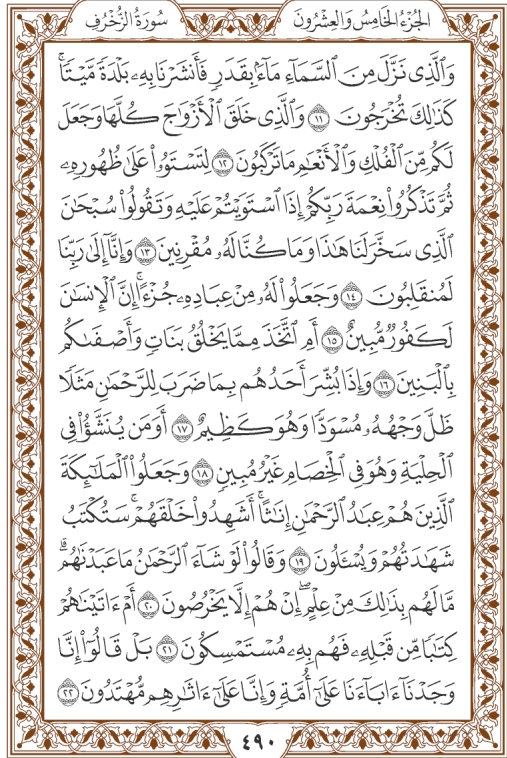 سُورَةُ الزُّخْرُفِ
الجُزْءُ الخَامِسُ وَالعِشْرُونَ
وَٱلَّذِى نَزَّلَ مِنَ ٱلسَّمَآءِ مَآءًۢ بِقَدَرٍۢ فَأَنشَرْنَا بِهِۦ بَلْدَةًۭ مَّيْتًۭا ۚ
كَذَٰلِكَ تُخْرَجُونَ ١١ وَٱلَّذِى خَلَقَ ٱلْأَزْوَٰجَ كُلَّهَا وَجَعَلَ
لَكُم مِّنَ ٱلْفُلْكِ وَٱلْأَنْعَٰمِ مَا تَرْكَبُونَ ١٢ لِتَسْتَوُۥا۟ عَلَىٰ ظُهُورِهِۦ
ثُمَّ تَذْكُرُوا۟ نِعْمَةَ رَبِّكُمْ إِذَا ٱسْتَوَيْتُمْ عَلَيْهِ وَتَقُولُوا۟ سُبْحَٰنَ
ٱلَّذِى سَخَّرَ لَنَا هَٰذَا وَمَا كُنَّا لَهُۥ مُقْرِنِينَ ١٣ وَإِنَّآ إِلَىٰ رَبِّنَا
لَمُنقَلِبُونَ ١٤ وَجَعَلُوا۟ لَهُۥ مِنْ عِبَادِهِۦ جُزْءًا ۚ إِنَّ ٱلْإِنسَٰنَ
لَكَفُورٌۭ مُّبِينٌ ١٥ أَمِ ٱتَّخَذَ مِمَّا يَخْلُقُ بَنَاتٍۢ وَأَصْفَىٰكُم
بِٱلْبَنِينَ ١٦ وَإِذَا بُشِّرَ أَحَدُهُم بِمَا ضَرَبَ لِلرَّحْمَٰنِ مَثَلًۭا
ظَلَّ وَجْهُهُۥ مُسْوَدًّۭا وَهُوَ كَظِيمٌ ١٧ أَوَمَن يُنَشَّؤُا۟ فِى
ٱلْحِلْيَةِ وَهُوَ فِى ٱلْخِصَامِ غَيْرُ مُبِينٍۢ ١٨ وَجَعَلُوا۟ ٱلْمَلَٰٓئِكَةَ
ٱلَّذِينَ هُمْ عِبَٰدُ ٱلرَّحْمَٰنِ إِنَٰثًا ۚ أَشَهِدُوا۟ خَلْقَهُمْ ۚ سَتُكْتَبُ
شَهَٰدَتُهُمْ وَيُسْـَٔلُونَ ١٩ وَقَالُوا۟ لَوْ شَآءَ ٱلرَّحْمَٰنُ مَا عَبَدْنَٰهُم ۗ
مَّا لَهُم بِذَٰلِكَ مِنْ عِلْمٍ ۖ إِنْ هُمْ إِلَّا يَخْرُصُونَ ٢٠ أَمْ ءَاتَيْنَٰهُمْ
كِتَٰبًۭا مِّن قَبْلِهِۦ فَهُم بِهِۦ مُسْتَمْسِكُونَ ٢١ بَلْ قَالُوٓا۟ إِنَّا
وَجَدْنَآ ءَابَآءَنَا عَلَىٰٓ أُمَّةٍۢ وَإِنَّا عَلَىٰٓ ءَاثَٰرِهِم مُّهْتَدُونَ ٢٢
٤٩٠